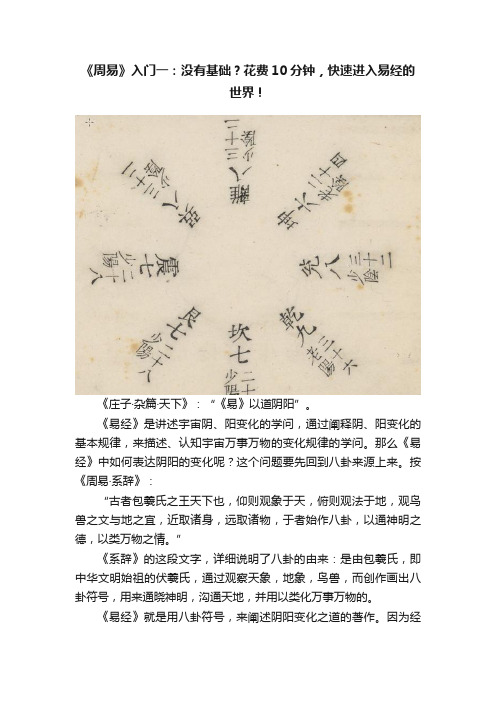 《周易》入门一：没有基础？花费10分钟，快速进入易经的
世界！
離八
三十二
少陰
坤六
二十四
老陰
兌八
三十二
少陰
乾九
三十六
老陽
坎七
二十
少陽
艮七
二十八
少陽
震七
二十八
少陽
巽八
三十二
少陰
《庄子·杂篇·天下》：“《易》以道阴阳”。
《易经》是讲述宇宙阴、阳变化的学问，通过阐释阴、阳变化的
基本规律，来描述、认知宇宙万事万物的变化规律的学问。那么《易
经》中如何表达阴阳的变化呢？这个问题要先回到八卦来源上来。按
《周易·系辞》：
“古者包羲氏之王天下也，仰则观象于天，俯则观法于地，观鸟
兽之文与地之宜，近取诸身，远取诸物，于者始作八卦，以通神明之
德，以类万物之情。”
《系辞》的这段文字，详细说明了八卦的由来：是由包羲氏，即
中华文明始祖的伏羲氏，通过观察天象，地象，鸟兽，而创作画出八
卦符号，用来通晓神明，沟通天地，并用以类化万事万物的。
《易经》就是用八卦符号，来阐述阴阳变化之道的著作。因为经